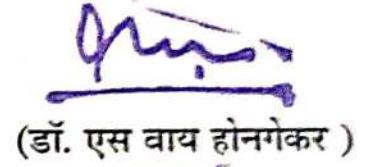 (डॉ. एस वाय होनगेकर )